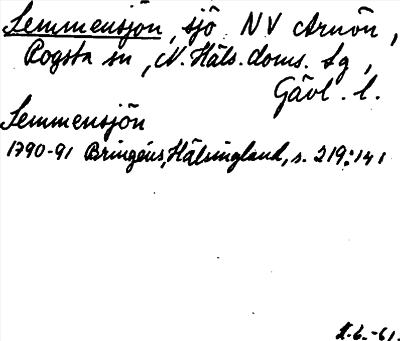 Lemmensjön, sjö NV Arnön,
Rogsta sn, N. Häls. doms. sg,
Gävl. l.
Lemmensjön
1790-91 Bringéus, Hälsingland, s. 219:141